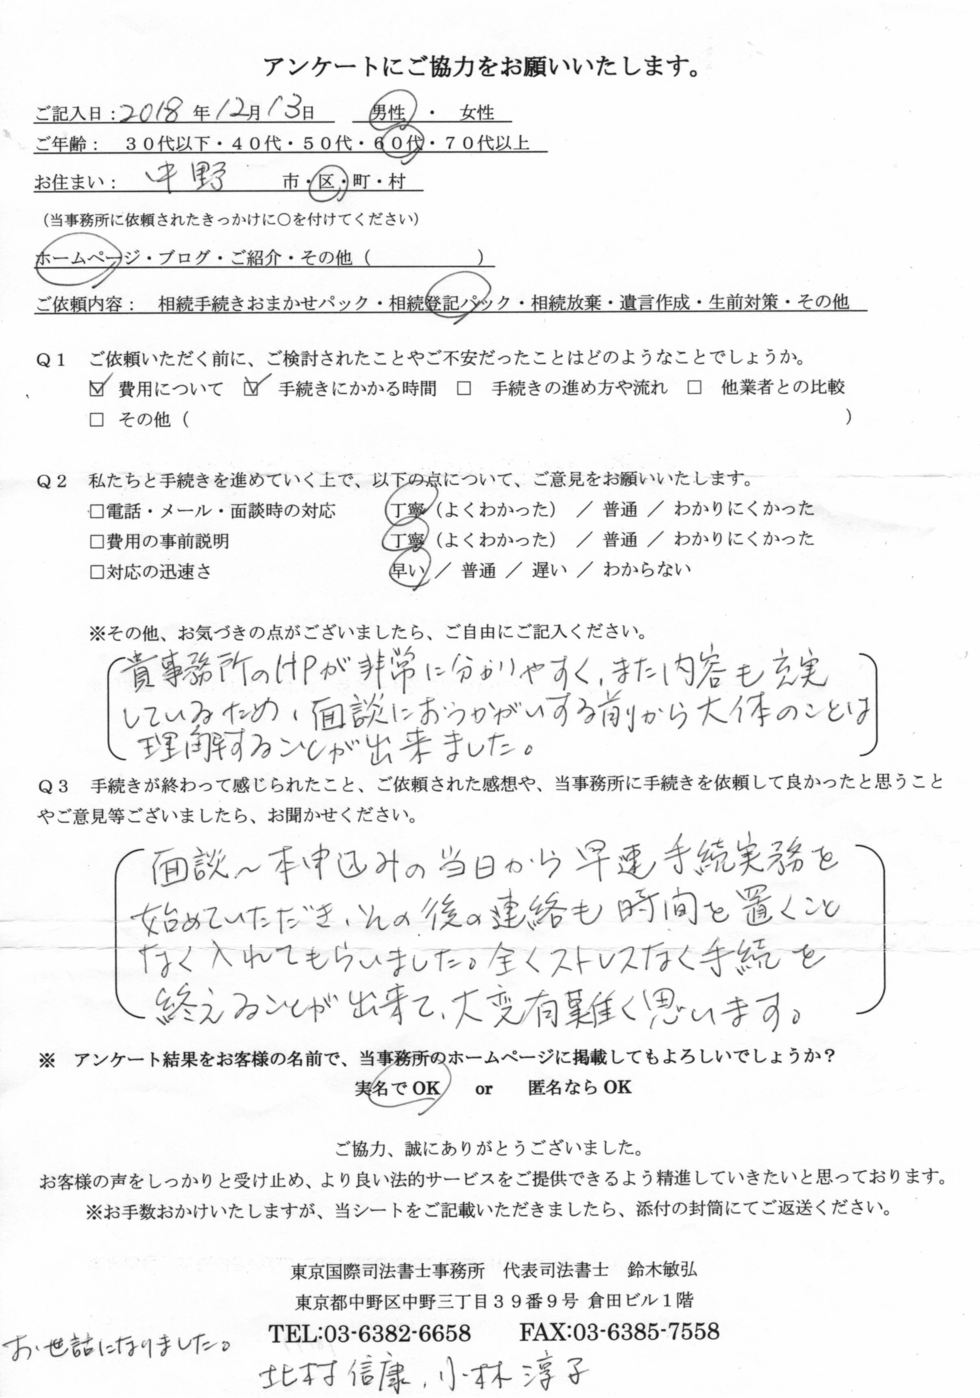 アンケートにご協力をお願いいたします。
ご記入日：2018年12月13日　男性　・　女性
ご年齢：　３０代以下・４０代・５０代・６０代・７０代以上
お住まい：　中野　市・区・町・村
（当事務所に依頼されたきっかけに○を付けてください）
ホームページ・ブログ・ご紹介・その他（　　　　　　）
ご依頼内容：　相続手続きおまかせパック・相続登記パック・相続放棄・遺言作成・生前対策・その他
Ｑ１　ご依頼いただく前に、ご検討されたことやご不安だったことはどのようなことでしょうか。
☑ 費用について　☑ 手続きにかかる時間　□ 手続きの進め方や流れ　□ 他業者との比較
□ その他（　　　　　　）
Ｑ２　私たちと手続きを進めていく上で、以下の点について、ご意見をお願いいたします。
□電話・メール・面談時の対応　丁寧（よくわかった）　／　普通　／　わかりにくかった
□費用の事前説明　丁寧（よくわかった）　／　普通　／　わかりにくかった
□対応の迅速さ　早い　／　普通　／　遅い　／　わからない
※その他、お気づきの点がございましたら、ご自由にご記入ください。
貴事務所のHPが非常に分かりやすく、また内容も充実
しているため、面談におうかがいする前から大体のことは
理解することが出来ました。
Ｑ３　手続きが終わって感じられたこと、ご依頼された感想や、当事務所に手続きを依頼して良かったと思うこと
やご意見等ございましたら、お聞かせください。
面談～本申込みの当日から早速手続実務を
始めていただき、その後の連絡も時間を置くこと
なく入れてもらいました。全くストレスなく手続を
終えることが出来て、大変有難く思います。
※　アンケート結果をお客様の名前で、当事務所のホームページに掲載してもよろしいでしょうか？
実名でOK　or　匿名ならOK
ご協力、誠にありがとうございました。
お客様の声をしっかりと受け止め、より良い法的サービスをご提供できるよう精進していきたいと思っております。
※お手数おかけいたしますが、当シートをご記載いただきましたら、添付の封筒にてご返送ください。
東京国際司法書士事務所　代表司法書士　鈴木敏弘
東京都中野区中野三丁目３９番９号 倉田ビル１階
TEL:03-6382-6658　FAX:03-6385-7558
お世話になりました。
北村信康、小林淳子